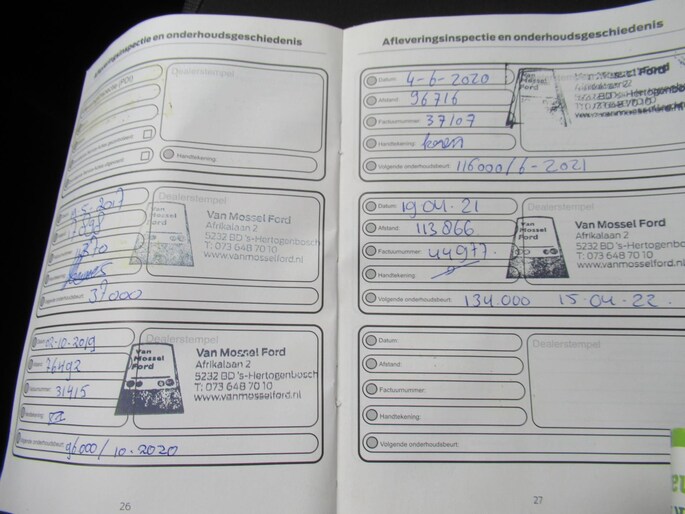 Afleveringsinspectie en onderhoudsgeschiedenis
Dealerstempel
Handtekening:
Dealerstempel
37000
Van Mossel Ford
Van Mossel Ford
Afrikalaan 2
5232 BD 's-Hertogenbosch
T: 073 648 70 10
www.vanmosselford.nl
Dealerstempel
02-10-2019
76492
31415
96000/10-2020
Van Mossel Ford
Van Mossel Ford
Afrikalaan 2
5232 BD 's-Hertogenbosch
T: 073 648 70 10
www.vanmosselford.nl
26
Afleveringsinspectie en onderhoudsgeschiedenis
Datum: 4-6-2020
Afstand: 96716
Factuurnummer: 37107
Handtekening:
Volgende onderhoudsbeurt: 116000/6-2021
Van Mossel Ford
Datum: 19 04. 21
Afstand: 113866
Factuurnummer: 44977.
Handtekening:
Volgende onderhoudsbeurt: 134.000 15-04-22.
Dealerstempel
Van Mossel Ford
Van Mossel Ford
Afrikalaan 2
5232 BD 's-Hertogenbosch
T: 073 648 70 10
www.vanmosselford.nl
Datum:
Afstand:
Factuurnummer:
Handtekening:
Volgende onderhoudsbeurt:
Dealerstempel
27